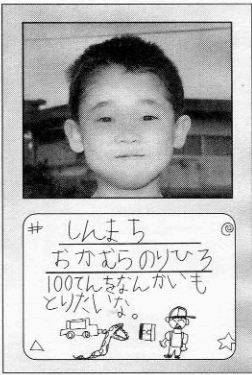 しんまち
おかむらのりひろ
100てんをなんかいも
とりたいな。